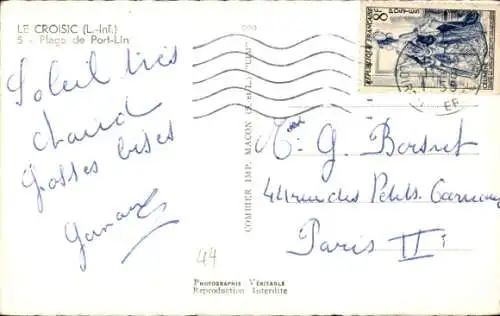 LE CROISIC (L.-Inf.)
5 - Plage de Port-Lin
Soleil très
chaud
Grosses bises
COMBIER IMP. MACON (S.-&-L.) "CIM"
8F
POSTES
REPUBLIQUE FRANÇAISE
G. Boisnet
44 rue des Petits Carreaux
Paris II
44
PHOTOGRAPHIE VÉRITABLE
Reproduction Interdite